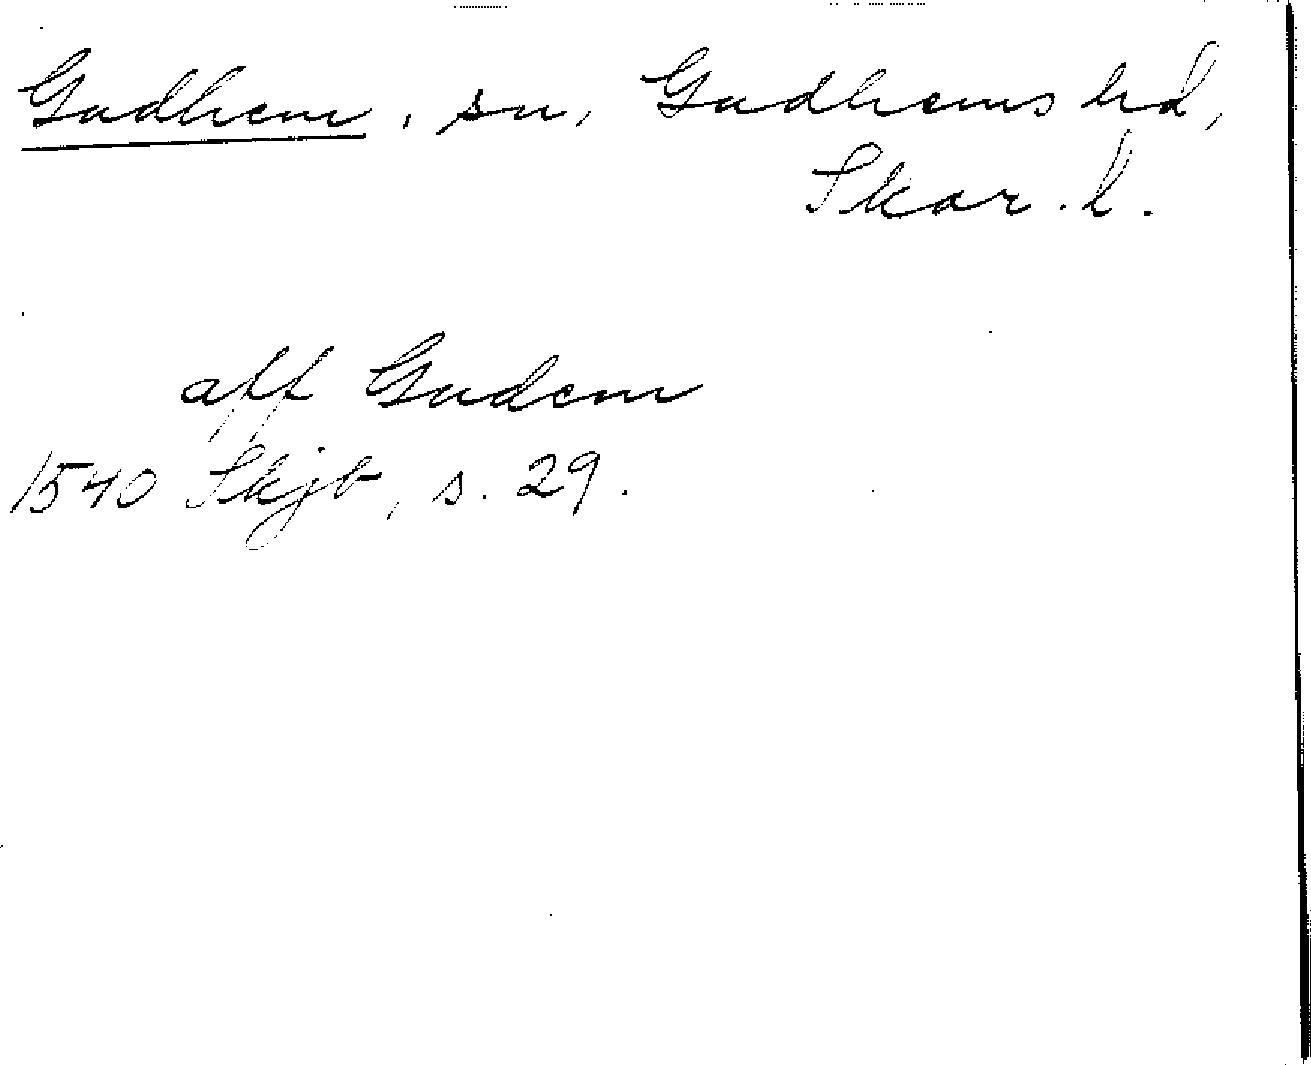 Gudhem, sn, Gudhems hd,
Skar. l.
aff Gudem
1540 Skjb, s. 29.